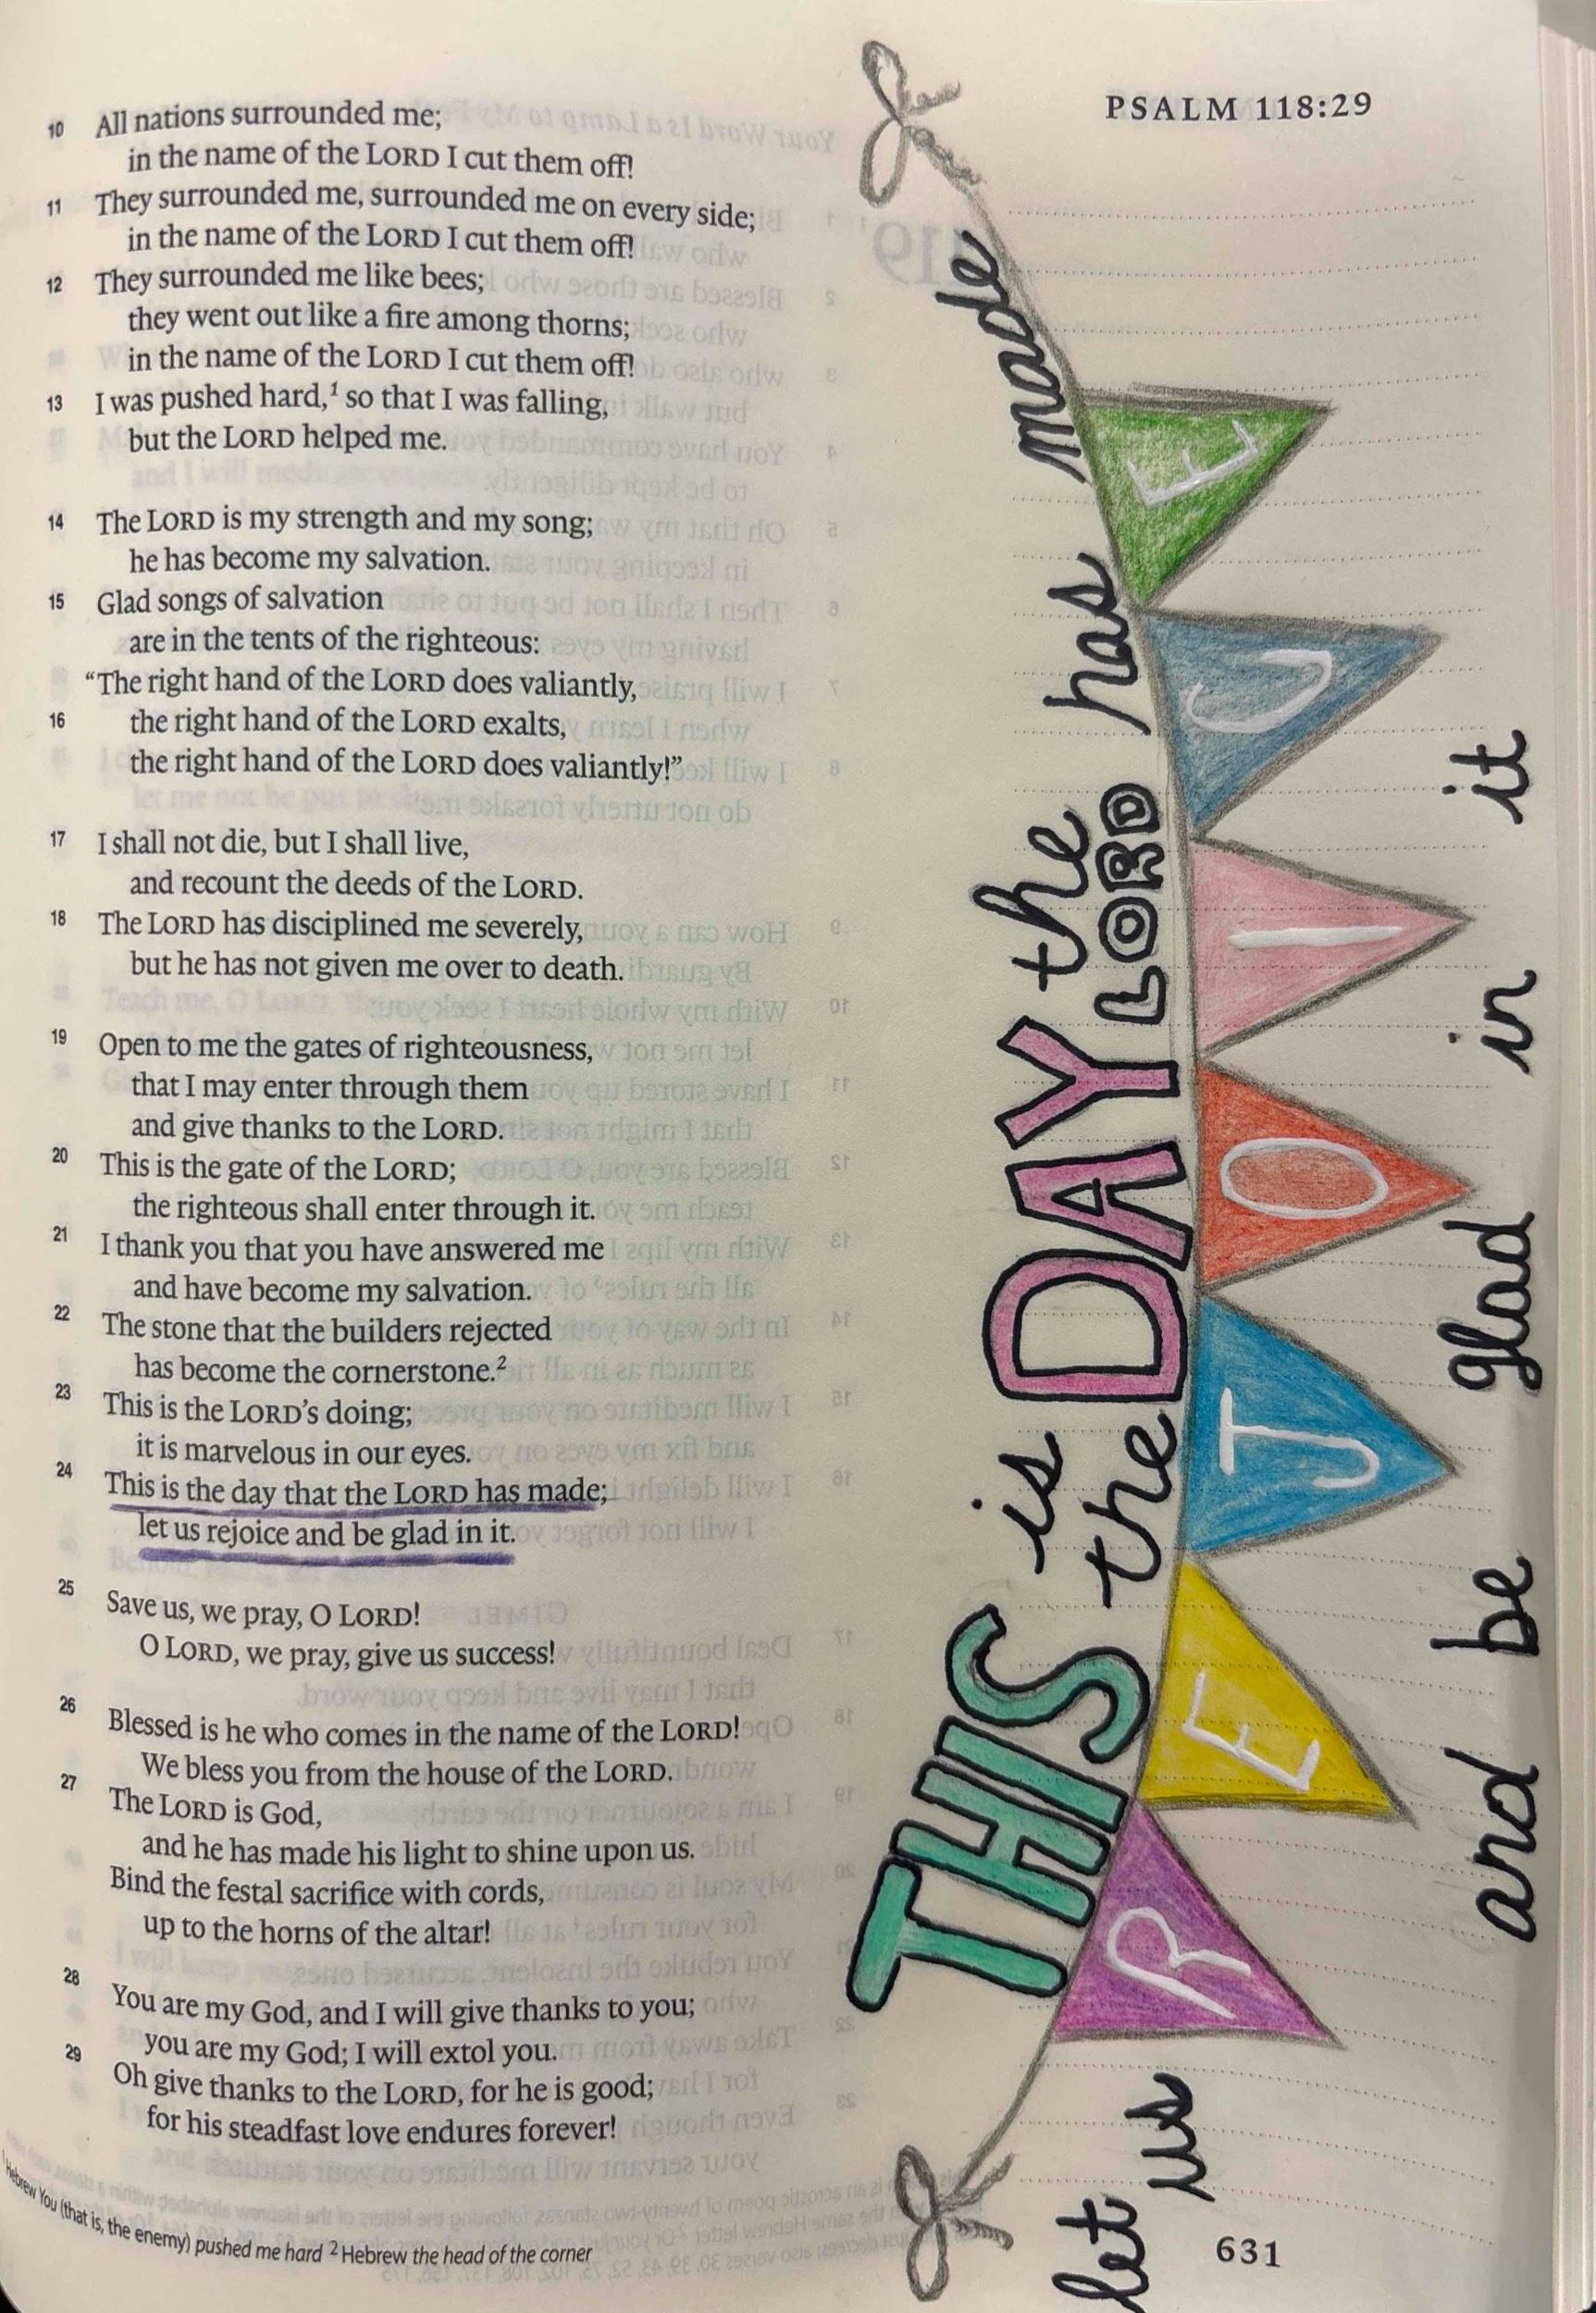 PSALM 118:29
10 All nations surrounded me;
in the name of the LORD I cut them off!
11 They surrounded me, surrounded me on every side;
in the name of the LORD I cut them off!
12 They surrounded me like bees;
they went out like a fire among thorns;
in the name of the LORD I cut them off!
13 I was pushed hard,¹ so that I was falling,
but the LORD helped me.
14 The LORD is my strength and my song;
he has become my salvation.
15 Glad songs of salvation
are in the tents of the righteous:
“The right hand of the LORD does valiantly,
16 the right hand of the LORD exalts,
the right hand of the LORD does valiantly!”
17 I shall not die, but I shall live,
and recount the deeds of the LORD.
18 The LORD has disciplined me severely,
but he has not given me over to death.
19 Open to me the gates of righteousness,
that I may enter through them
and give thanks to the LORD.
20 This is the gate of the LORD;
the righteous shall enter through it.
21 I thank you that you have answered me
and have become my salvation.
22 The stone that the builders rejected
has become the cornerstone.²
23 This is the LORD’s doing;
it is marvelous in our eyes.
24 This is the day that the LORD has made;
let us rejoice and be glad in it.
25 Save us, we pray, O LORD!
O LORD, we pray, give us success!
26 Blessed is he who comes in the name of the LORD!
We bless you from the house of the LORD.
27 The LORD is God,
and he has made his light to shine upon us.
Bind the festal sacrifice with cords,
up to the horns of the altar!
28 You are my God, and I will give thanks to you;
you are my God; I will extol you.
29 Oh give thanks to the LORD, for he is good;
for his steadfast love endures forever!
¹ Hebrew You (that is, the enemy) pushed me hard ² Hebrew the head of the corner
631
THIS is the DAY the LORD has made
let us
REJOICE
and be glad in it